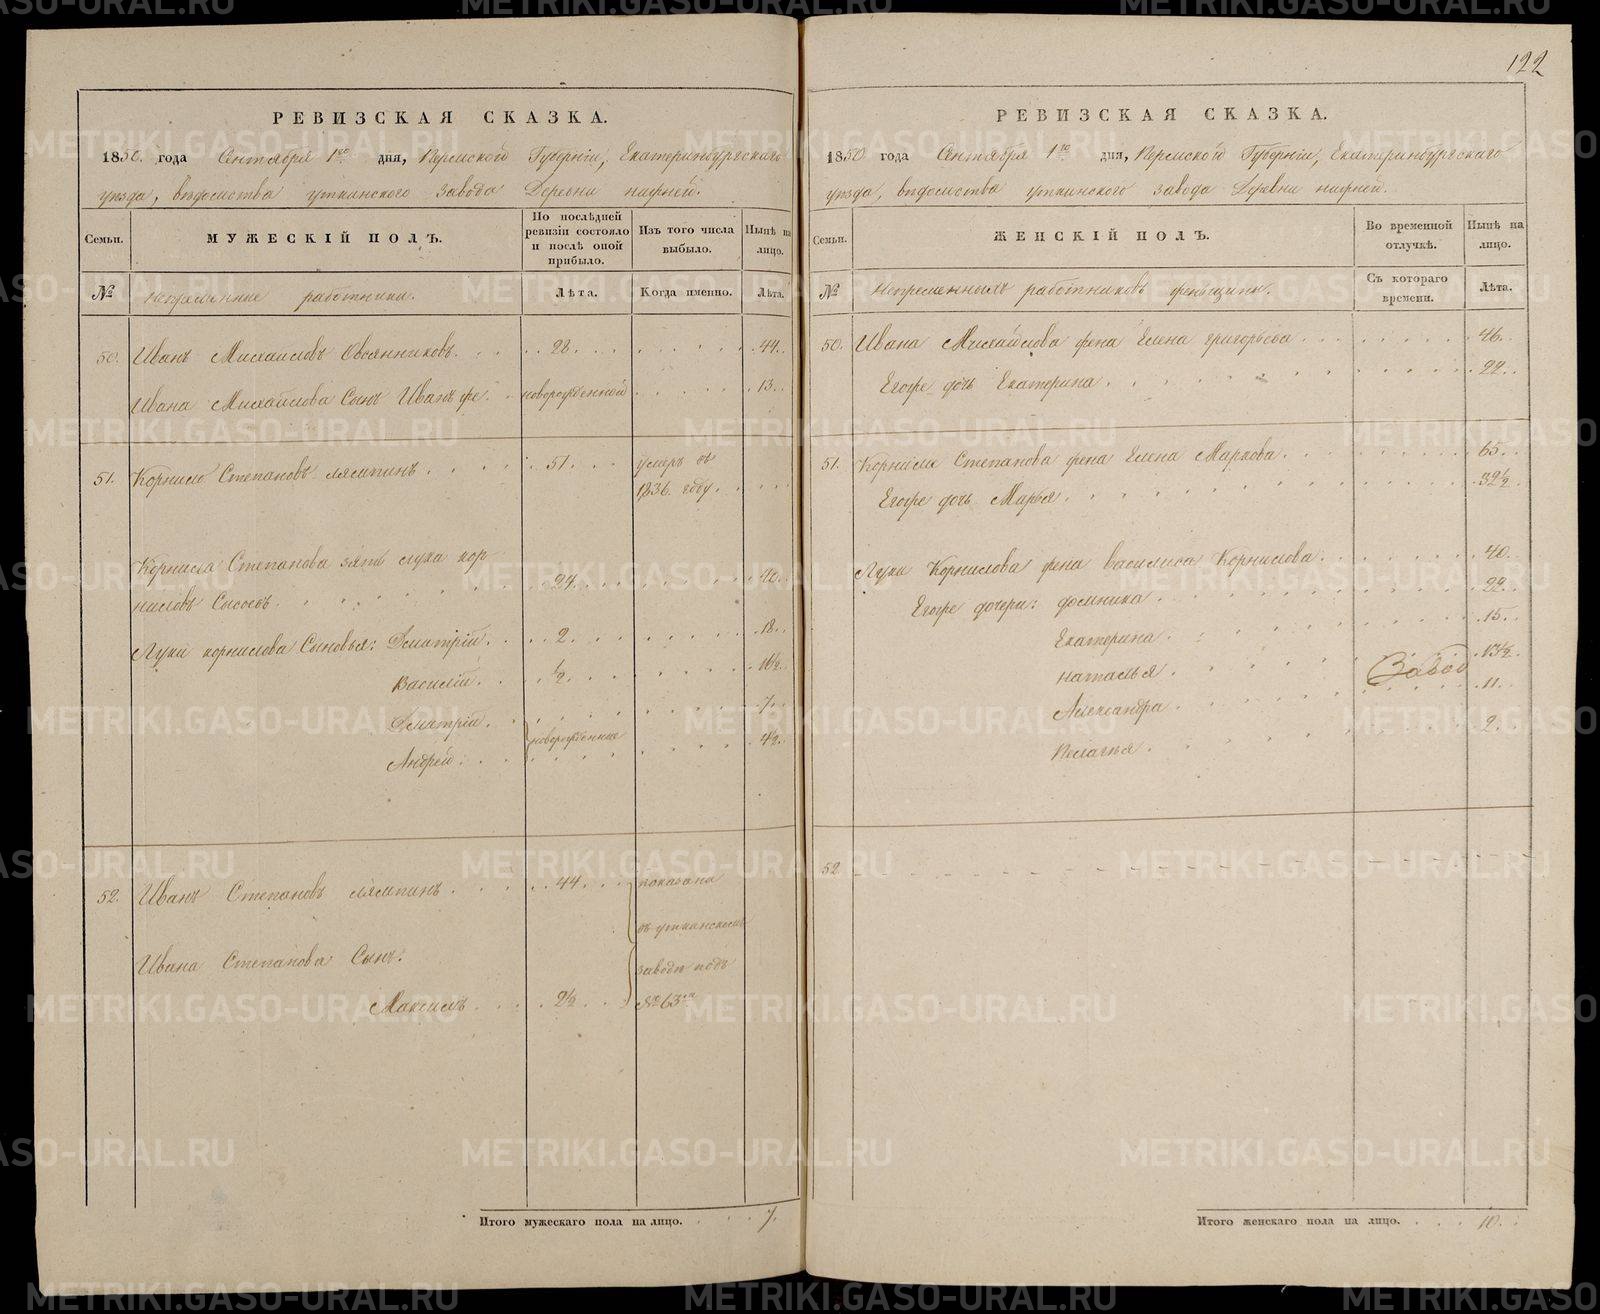 122
РЕВИЗСКАЯ СКАЗКА.
1850 года Сентября 1го дня, Пермской Губерніи, Екатеринбургскаго
уѣзда, вѣдомства уткинского завода Деревни нижней.
Семьи.
МУЖЕСКІЙ ПОЛЪ.
По послѣдней ревизіи состояло и послѣ оной прибыло.
Изъ того числа выбыло.
Нынѣ на лицо.
№
Непременные работники.
Лѣта.
Когда именно.
Лѣта.
50. Иванъ Михаиловъ Овсянниковъ. 28. 44.
Ивана Михайлова Сынъ Иванъ же. новорожденной 13.
51. Корнило Степановъ лямпинъ. 51. умеръ въ
1836. году.
Корнила Степанова зять лука кор-
ниловъ Сысоевъ. 24. 40.
Луки корнилова Сыновья: Дмитрій. 2. 18.
Василій. ½. 16½.
Дмитрій. 7.
новорожденные
Андрей. 4½.
52. Иванъ Степановъ лямпинъ. 44. показана
въ уткинскомъ
Ивана Степанова Сынъ: заводѣ подъ
Максимъ. 2½. №63мъ
Итого мужескаго пола на лицо. 7.
РЕВИЗСКАЯ СКАЗКА.
1850 года Сентября 1го дня, Пермской Губерніи, Екатеринбургскаго
уѣзда, вѣдомства уткинского завода Деревни нижней.
Семьи.
ЖЕНСКІЙ ПОЛЪ.
Во временной отлучкѣ.
Нынѣ на лицо.
№
Непременныхъ работниковъ женщины.
Съ котораго времени.
Лѣта.
50. Ивана Михайлова жена Елена григорьева 46.
Егоже дочь Екатерина. 22.
51. Корнила Степанова жена Елена Маркова. 65.
Егоже дочь Марья. 32½.
Луки Корнилова жена василиса Корнилова. 40.
Егоже дочери: домника. 22.
Екатерина. 15.
наталья. 13½.
Александра. 11.
Пелагея. 2.
52.
Итого женскаго пола на лицо. 10.
METRIKI.GASO-URAL.RU